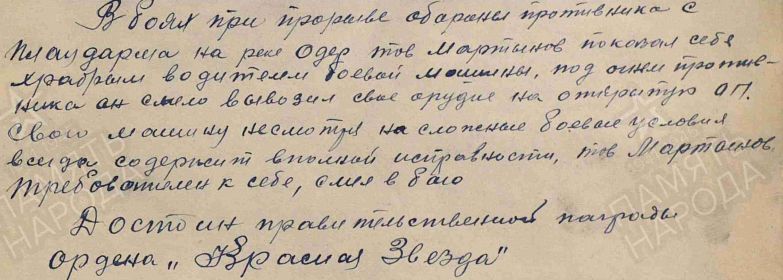 В боях при прорыве обароны противника с
плаударма на реке Одер тов Мартынов показал себя
храбрым водителем боевой машины, под огнем против-
ника он смело вывозил свое орудие на открытую ОП.
Свою машину несмотря на сложные боевые условия
всегда содержит вполной исправности, тов Мартынов
требователен к себе, смел в бою
Достоин правительственной награды
ордена „Красная Звезда"
ПАМЯТЬ НАРОДА
ПАМЯТЬ НАРОДА